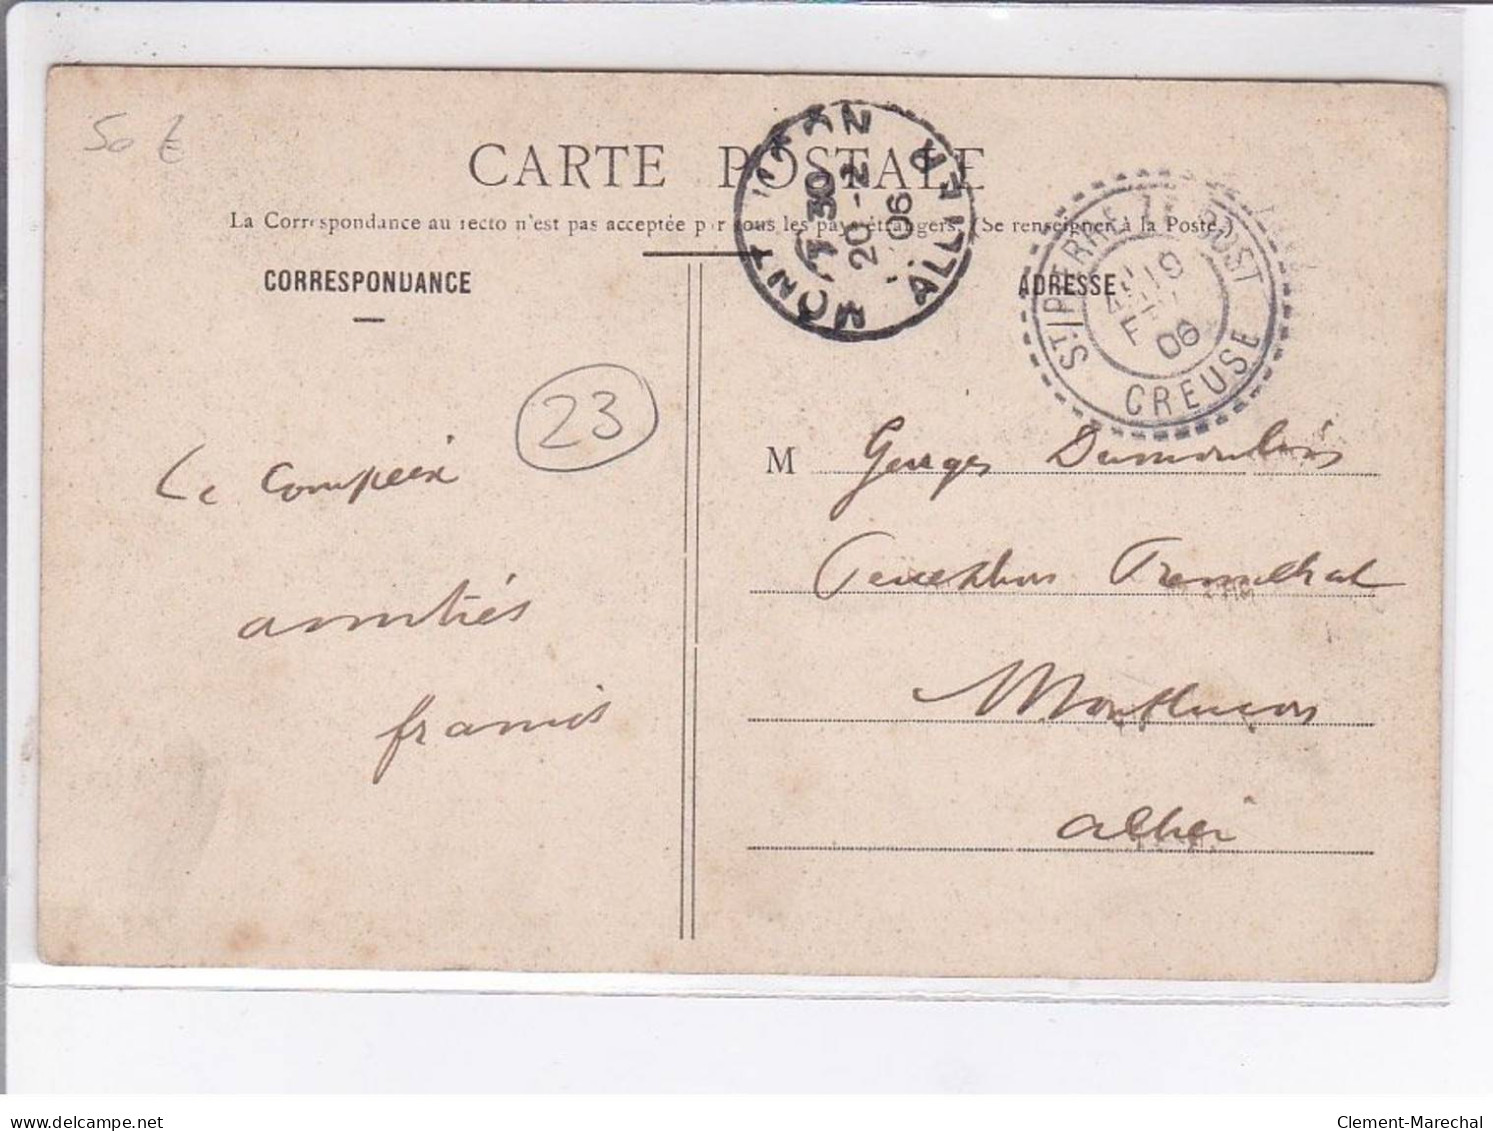 50 €
CARTE POSTALE
La Correspondance au recto n'est pas acceptée par tous les pays étrangers. (Se renseigner à la Poste.)
CORRESPONDANCE
ADRESSE
MONTLUÇON ALLIER
7 30
20 - 2
06
ST PIERRE LE BOST
CREUSE
19
06
23
Le Compeix
amitiés
francis
M Georges Dumoulins
Montluçon
allier
delcampe.net
Clement-Marechal